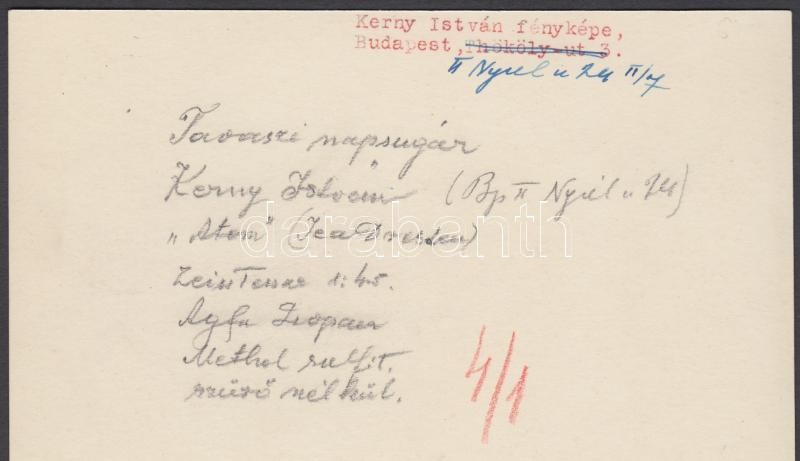 Kerny István fényképe,
Budapest, Thököly-ut 3.
II Nyúl u 24 II/7
Tavaszi napsugár
Kerny István (Bp II Nyúl u 24)
„Atom" (Ica Dresden)
Zeiss Tessar 1:4·5.
Agfa Isopan
Methol sulfit.
szűrő nélkül.
4/1
darabanth